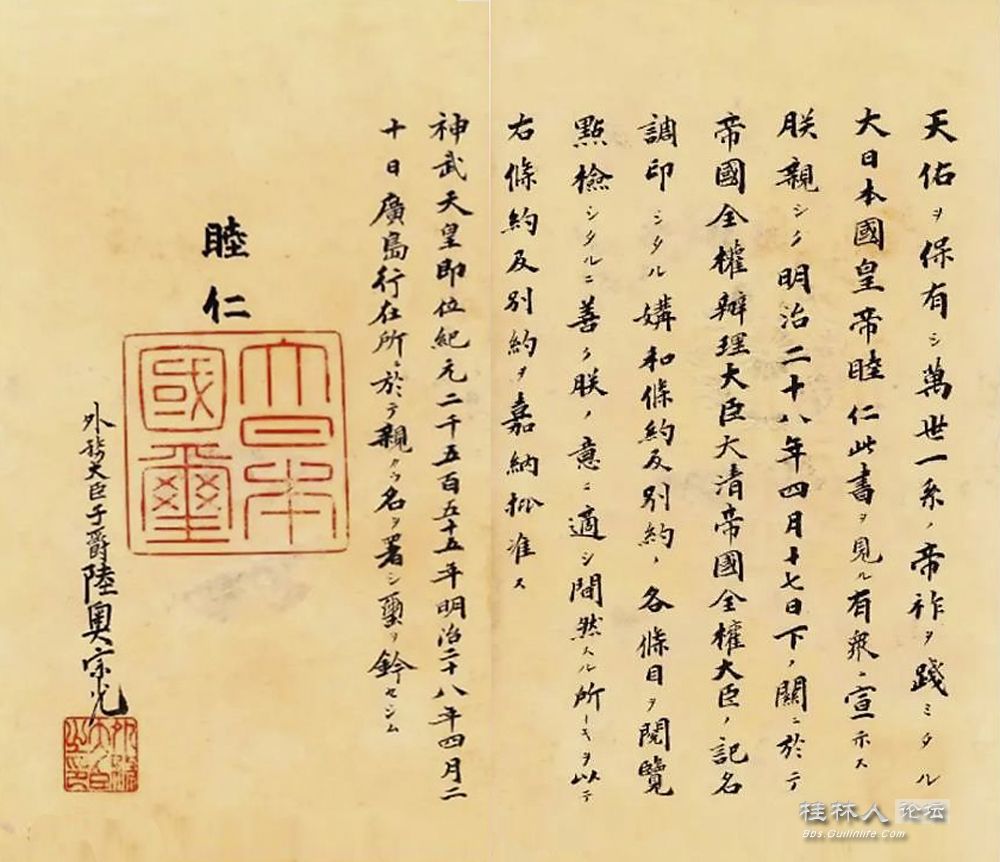 天佑ヲ保有シ萬世一系ノ帝祚ヲ踐ミタル
大日本國皇帝睦仁此書ヲ見ル有衆ニ宣示ス
朕親シク明治二十八年四月十七日下ノ關ニ於テ
帝國全權辦理大臣大清帝國全權大臣ノ記名
調印シタル媾和條約及別約ノ各條目ヲ閲覽
點檢シタルニ善ク朕ノ意ニ適シ間然スル所ナキヲ以テ
右條約及別約ヲ嘉納批准ス
神武天皇即位紀元二千五百五十五年明治二十八年四月二
十日廣島行在所ニ於テ親カラ名ヲ署シ璽ヲ鈐セシム
睦仁
大日本
國璽
外務大臣子爵陸奥宗光
外務
大臣
之印
桂林人论坛
Bbs.Guilinlife.Com